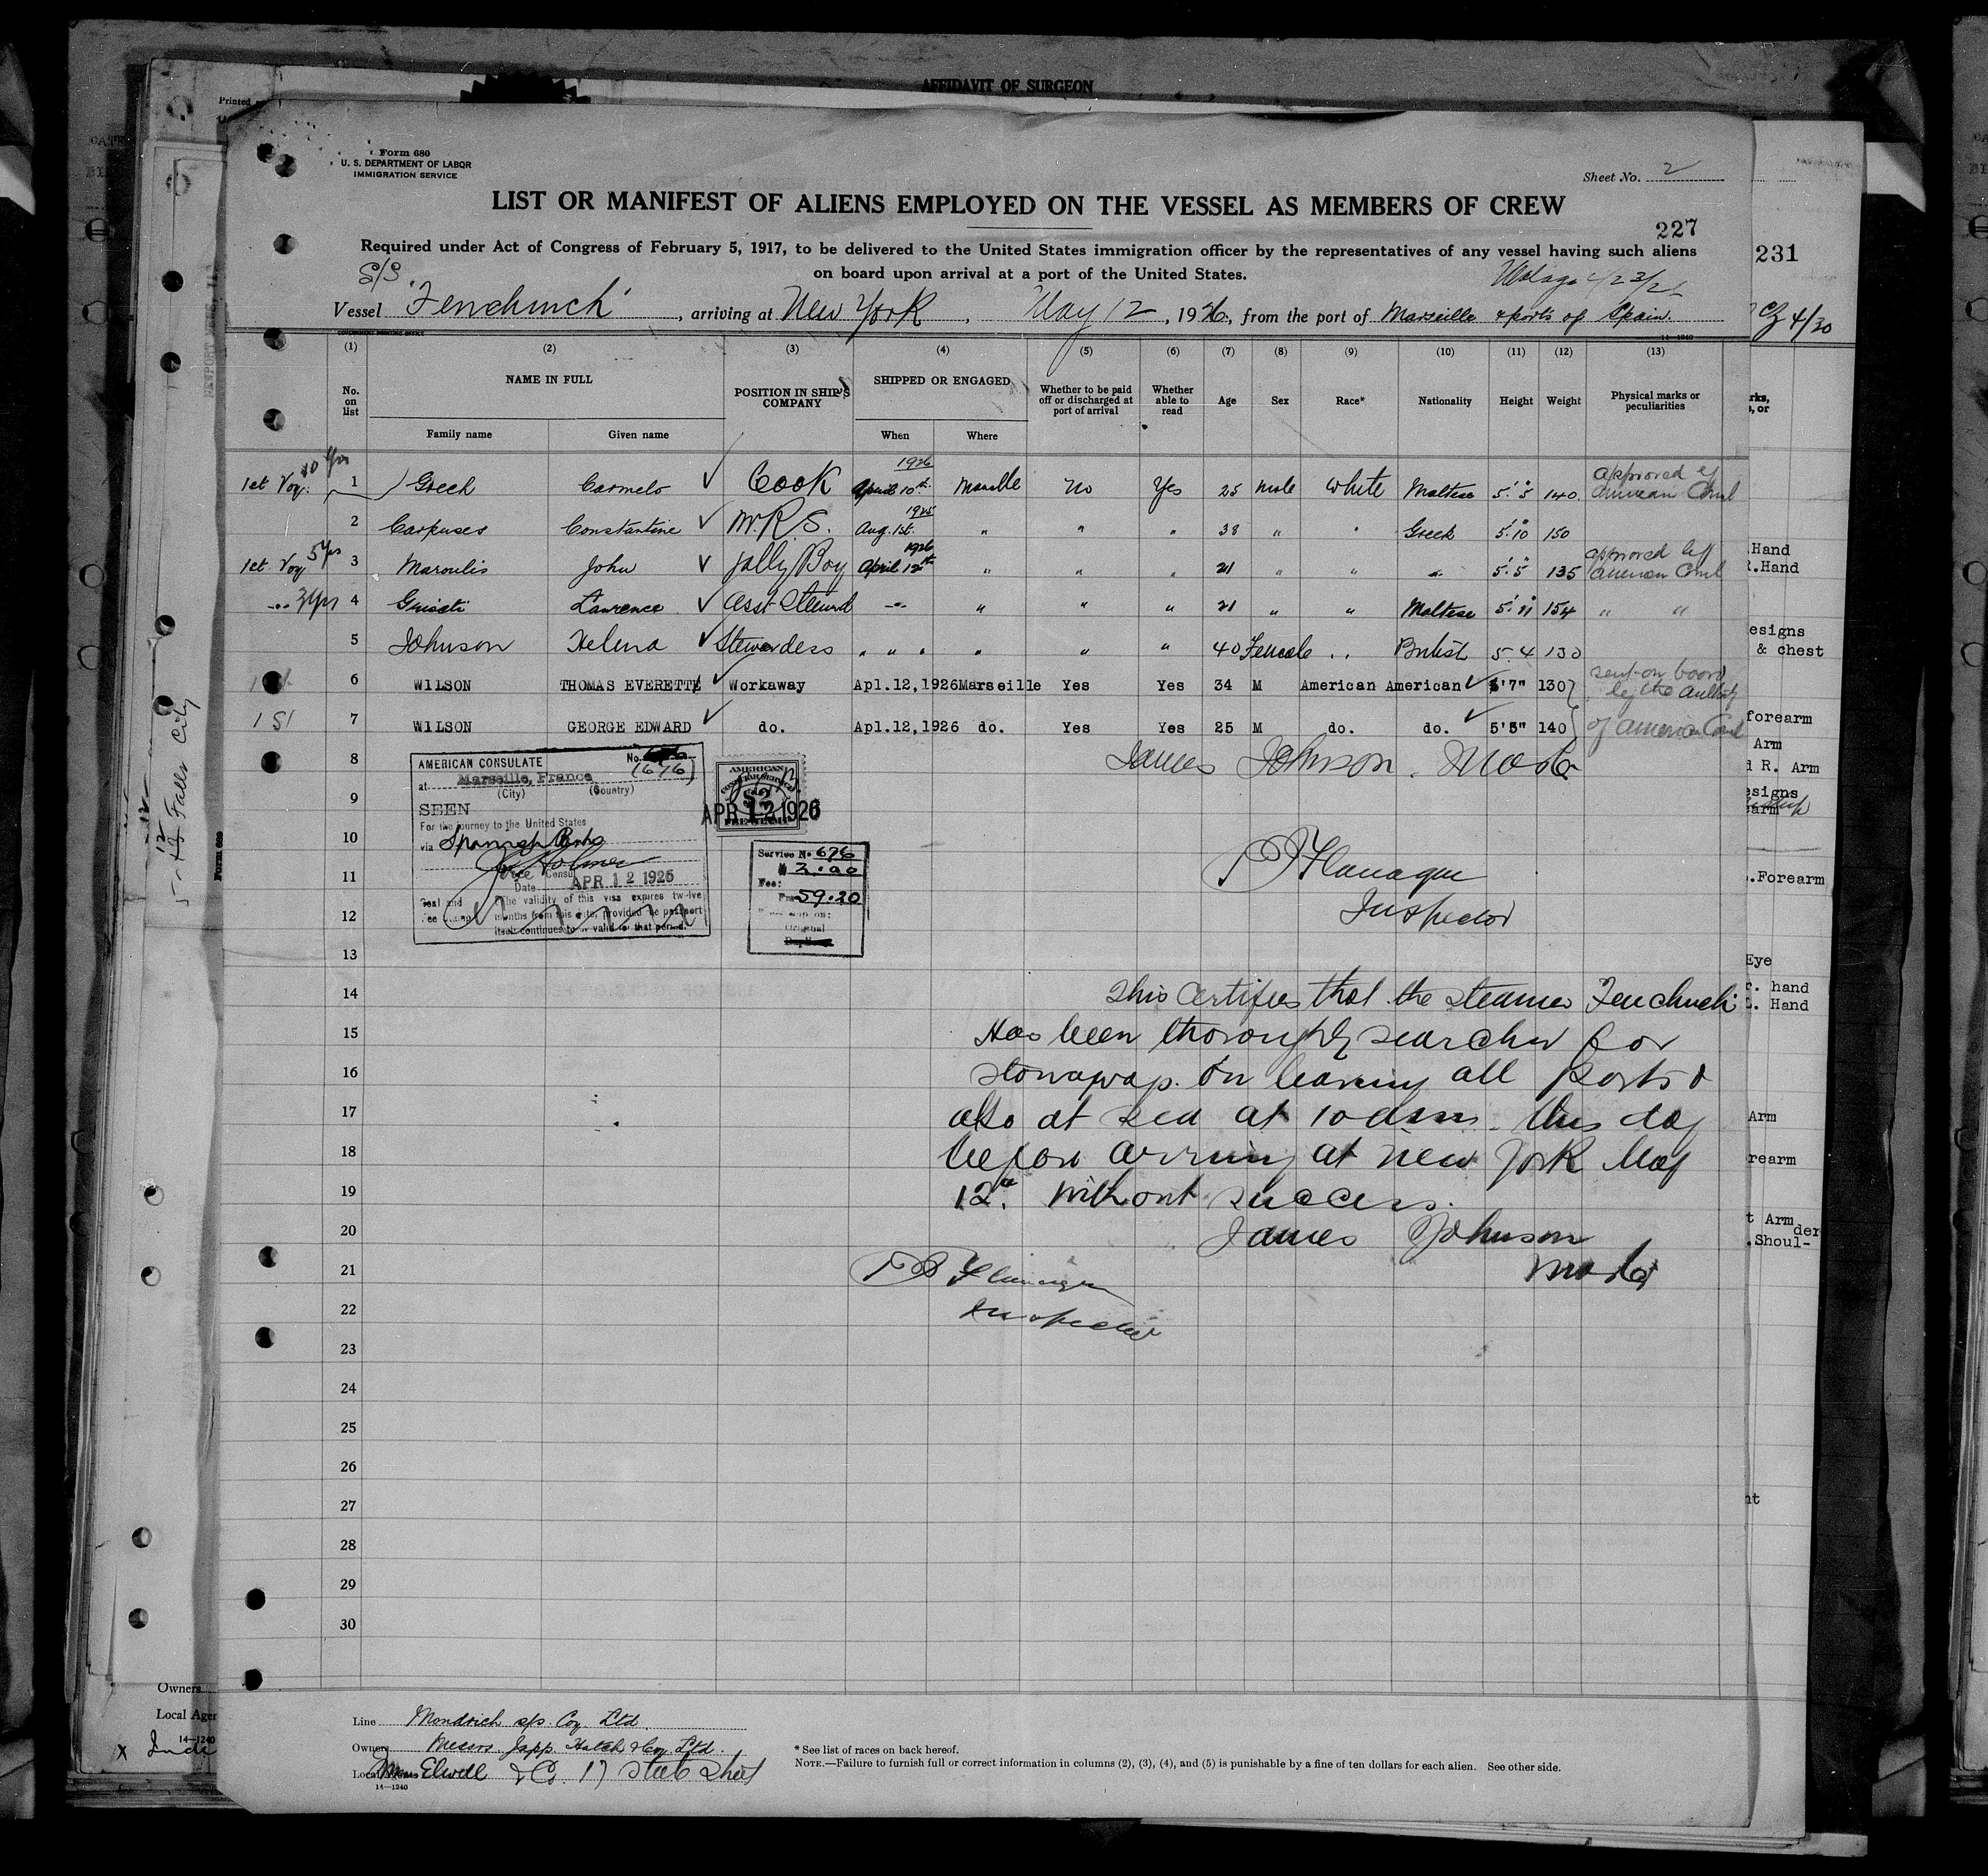 AFFIDAVIT OF SURGEON
Printed
Form 680
U. S. DEPARTMENT OF LABOR
IMMIGRATION SERVICE
Sheet No. 2
LIST OR MANIFEST OF ALIENS EMPLOYED ON THE VESSEL AS MEMBERS OF CREW
227
231
Required under Act of Congress of February 5, 1917, to be delivered to the United States immigration officer by the representatives of any vessel having such aliens
on board upon arrival at a port of the United States.
S/S
Malaga 4/23/26
Vessel 'Fenchurch', arriving at New York, May 12, 1926, from the port of Marseille & ports of Spain.
4/30
GOVERNMENT PRINTING OFFICE
14—1240
(1) (2) (3) (4) (5) (6) (7) (8) (9) (10) (11) (12) (13)
No. on list
NAME IN FULL
Family name
Given name
POSITION IN SHIP'S COMPANY
SHIPPED OR ENGAGED
When
Where
Whether to be paid off or discharged at port of arrival
Whether able to read
Age
Sex
Race*
Nationality
Height
Weight
Physical marks or peculiarities
1st Voy. 10 Yrs 1 Grech Carmelo Cook 1926 April 10th Marseille No Yes 25 Male White Maltese 5'.5" 140 approved by American Consul
2 Constantine W.R.S. 1925 Aug. 1st. " " " 38 " " Greek 5'.10" 150
1st Voy 5 Yrs 3 Maroulis John Gally Boy 1926 April 12th " " " 21 " " " 5'.5" 135 approved by American Consul
3 Yrs 4 Lawrence Asst Steward " " " 21 " " Maltese 5'.11" 154 " "
5 Johnson Helena Stewardess " " " " " " 40 Female " British 5.4 130
1st 6 WILSON THOMAS EVERETTE Workaway Apl.12,1926 Marseille Yes Yes 34 M American American 5'7" 130 sent on board by the Authority
1st 7 WILSON GEORGE EDWARD do. Apl.12,1926 do. Yes Yes 25 M do. do. 5'5" 140 of American Consul
8
James Johnson. Master
AMERICAN CONSULATE No. (676)
at Marseille, France
(City) (Country)
SEEN
For the journey to the United States
via Spanish Ports
Vice Consul
Date APR 12 1926
Seal and
Fee stamp
The validity of this visa expires twelve
months from this date, provided the passport
itself continues to be valid for that period.
AMERICAN
$2
APR 12 1926
Service No 676
$ 2.00
Fee:
59.20
Original
9
10
11
Flanagan
12
Inspector
13
14
This Certifies that the steamer Fenchurch
15
Has been thoroughly searched for
16
stowaways. On leaving all Ports &
17
also at sea at 10 am. this day
18
before arriving at New York May
19
12th. Without success.
20
James Johnson
21
Master
Flanagan
22
Inspector
23
24
25
26
27
28
29
30
Line Mondrich s/s. Coy Ltd.
Owners Messrs. Japp Hatch & Coy Ltd.
Local Agents Elwell & Co 17 State Street
14—1240
* See list of races on back hereof.
NOTE.—Failure to furnish full or correct information in columns (2), (3), (4), and (5) is punishable by a fine of ten dollars for each alien. See other side.
Form 680
Falls City
Owners
Local Agen
14—1240
rks,
, or
.Hand
R.Hand
esigns
& chest
forearm
Arm
d R. Arm
esigns
earm
.Forearm
Eye
r. hand
L. Hand
Arm
rearm
t Arm
der
.Shoul-
nt